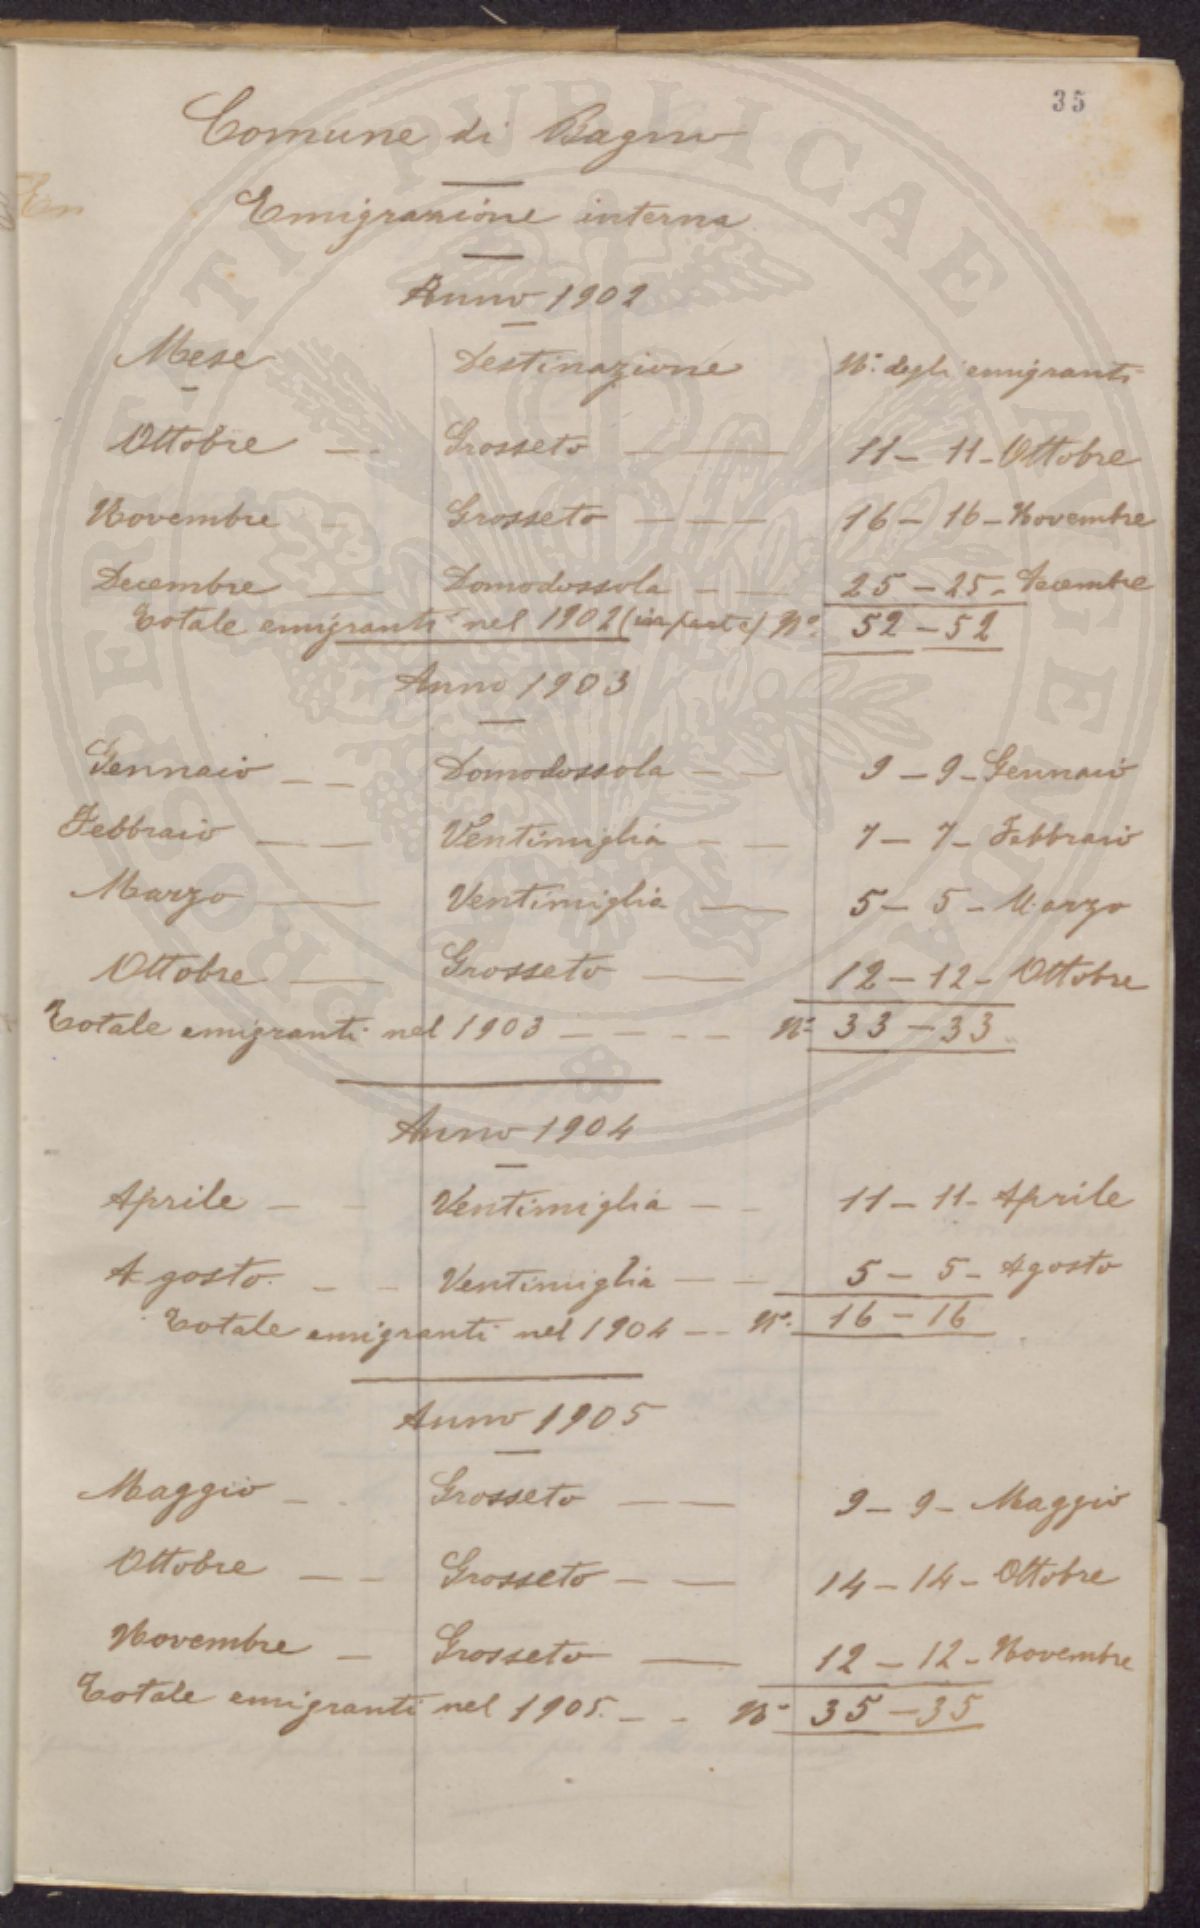 35
Comune di Bagno
Emigrazione interna
Anno 1902
Mese Destinazione N.° degli emigranti
Ottobre — - Grosseto — — 11 — 11 - Ottobre
Novembre - Grosseto — — — 16 — 16 - Novembre
Decembre — Domodossola - — 25 — 25 - Decembre
Totale emigranti nel 1902 (in parte) N.° 52 — 52
Anno 1903
Gennaio — — Domodossola — — 9 — 9 - Gennaio
Febbraio — — Ventimiglia — — 7 — 7 - Febbraio
Marzo — Ventimiglia — 5 — 5 - Marzo
Ottobre — Grosseto — 12 — 12 - Ottobre
Totale emigranti nel 1903 — — - — N.° 33 — 33
Anno 1904
Aprile — - Ventimiglia — - 11 — 11 - Aprile
Agosto. — - Ventimiglia — — 5 — 5 - Agosto
Totale emigranti nel 1904 — — N.° 16 — 16
Anno 1905
Maggio — . Grosseto — — 9 — 9 - Maggio
Ottobre — — Grosseto — — 14 — 14 - Ottobre
Novembre — Grosseto — 12 — 12 - Novembre
Totale emigranti nel 1905. — - N.° 35 — 35
PROSPERITATI PUBLICAE AUGENDAE